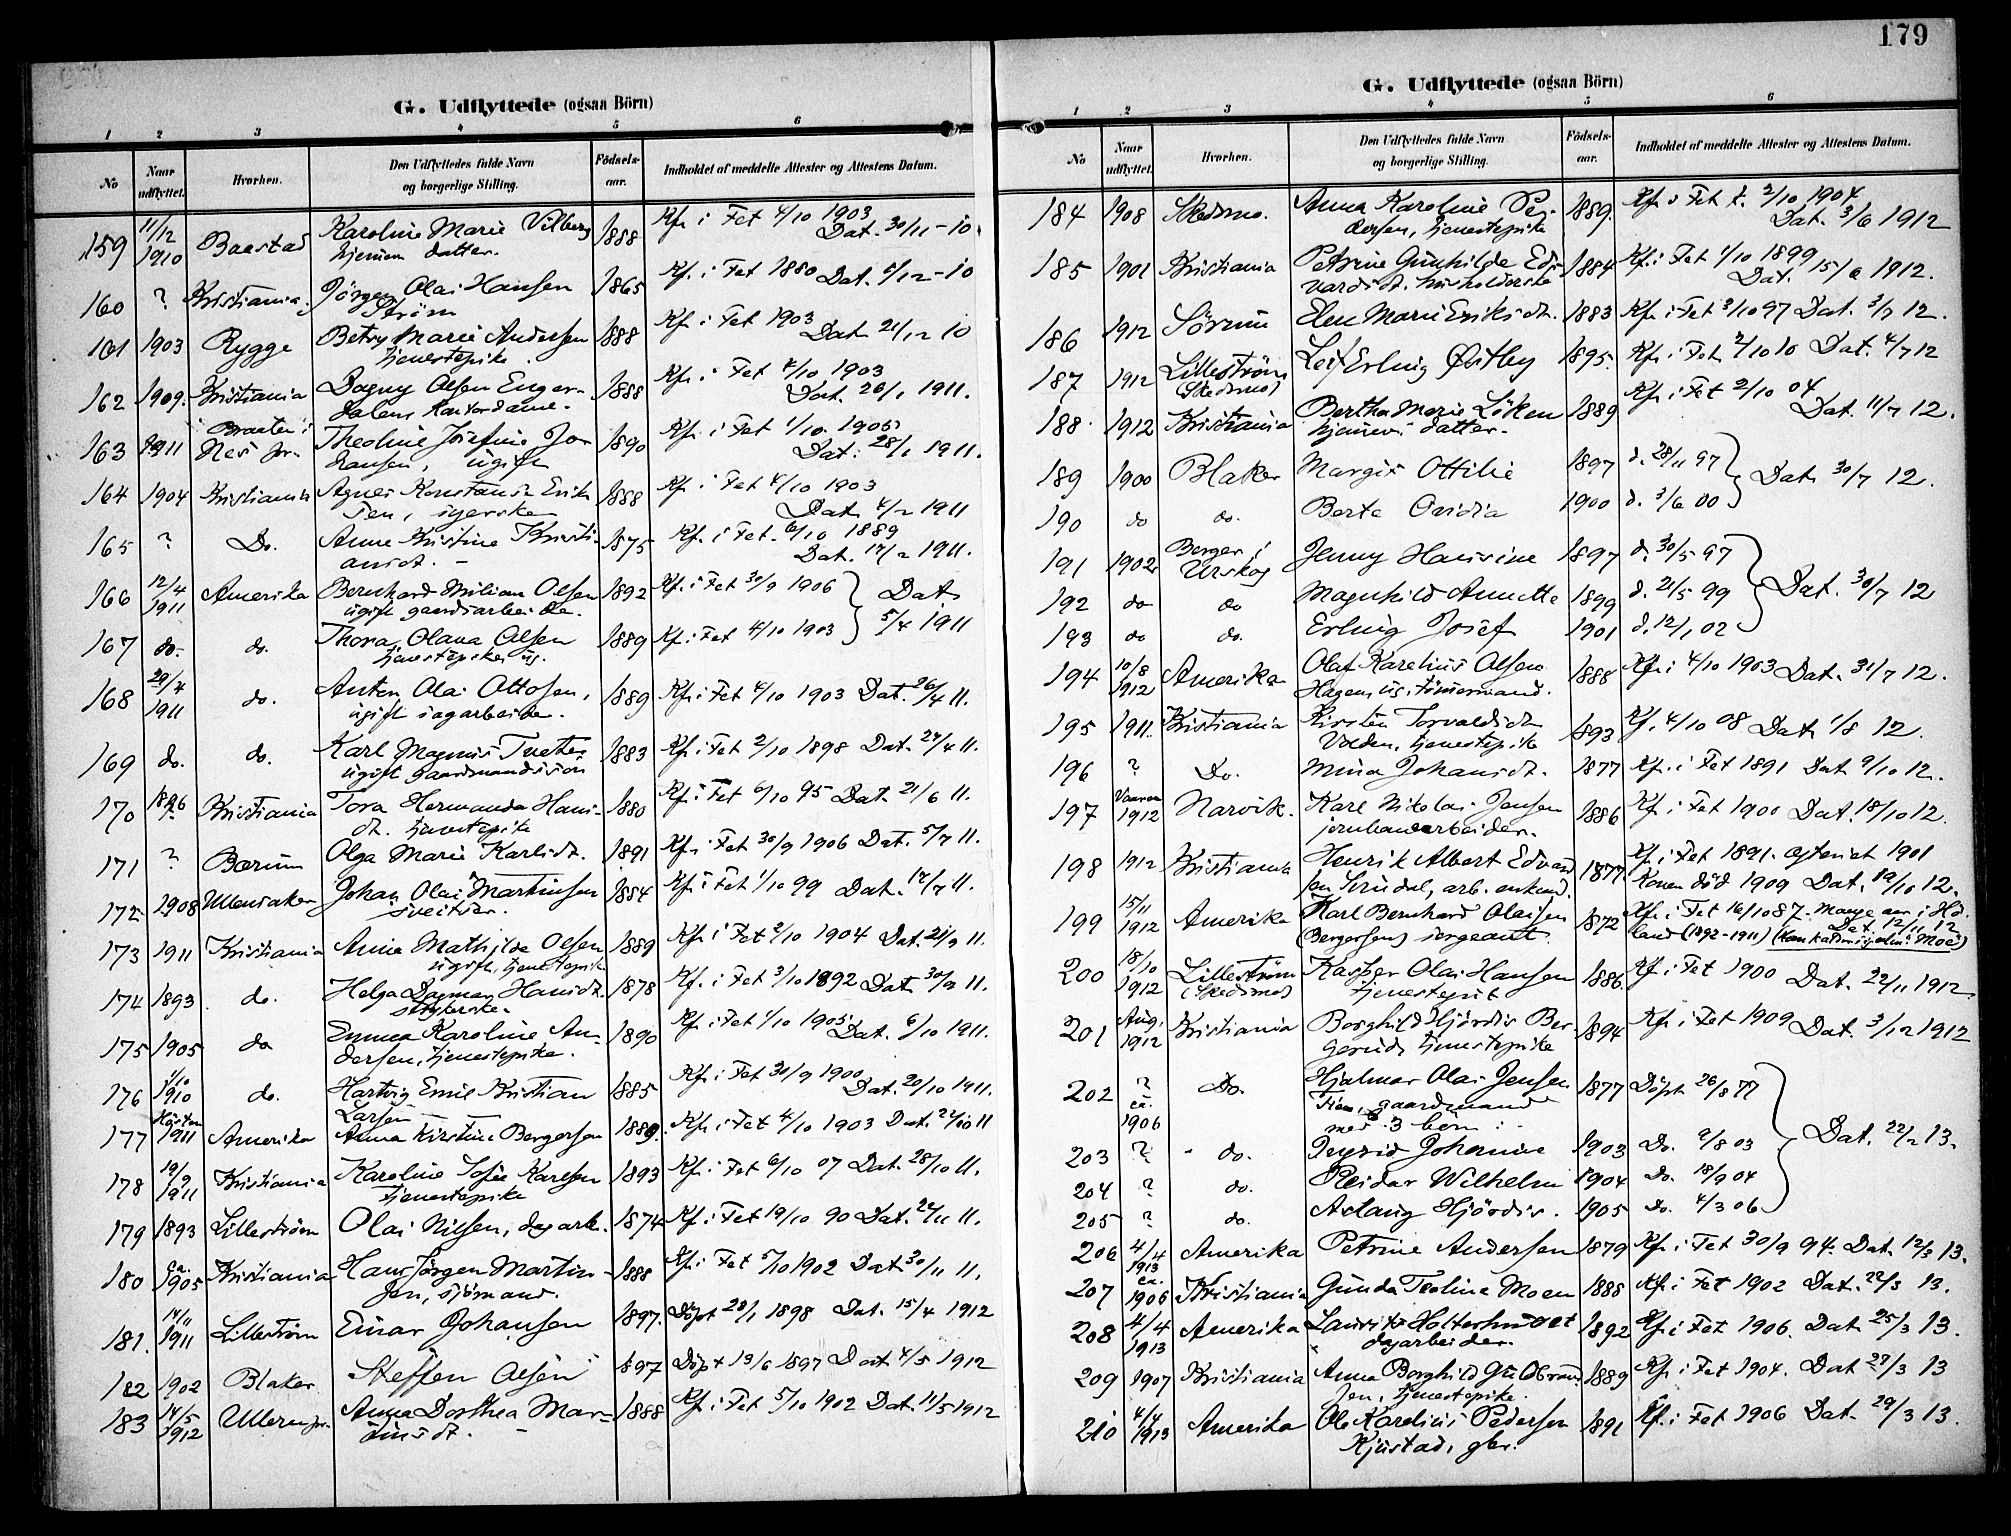 179
G. Udflyttede (ogsaa Börn)
1 2 3 4 5 6
No Naar udflyttet. Hvorhen. Den Udflyttedes fulde Navn og borgerlige Stilling. Födsels-aar. Indholdet af meddelte Attester og Attestens Datum.
159 11/12 1910 Baastad Karoline Marie Vilberg 1888 Kf. i Fet 4/10 1903
hjemm datter. Dat. 30/11 - 10.
160 ? Kristiania. Jörgen Olai Hansen 1865 Kf. i Fet 1880 Dat. 5/12 - 10
Ström
161 1903 Rygge Betsy Marie Andersen 1888 Kf. i Fet 1903
tjenestepike. Dat. 21/12 10
162 1909. Kristiania Dagny Olsen Enger- 1888 Kf. i Fet 4/10 1903
dalen, kontordame. Dat. 20/1 1911.
163 1911 Braaten i Nes Theoline Josefine Jo- 1890 Kf. i Fet 1/10 1905
hansen, ugift Dat. 28/1 1911.
164 1904 Kristiania Agnes Konstanse Erik- 1888 Kf. i Fet 4/10 1903
sen, syerske Dat. 4/2 1911
165 ? Do. Anne Kristine Kristi- 1875 Kf. i Fet. 6/10 1889
ansdt. - Dat. 17/2 1911.
166 12/4 1911 Amerika Bernhard Milian Olsen 1892 Kf. i Fet 30/9 1906 Dat.
ugift gaardsarbeider
167 do. do. Thora Olava Olsen 1889 Kf. i Fet 4/10 1903 5/4 1911
tjenestepike ug.
168 29/4 1911 do. Anton Olai Ottosen, 1889 Kf. i Fet 4/10 1903 Dat. 26/4 11.
ugift sagarbeider.
169 do. do. Karl Magnus Tveter 1883 Kf. i Fet 2/10 1898 Dat. 27/4 11.
ugift gaardmandssön
170 1896 Kristiania Tora Hermanda Hans- 1880 Kf. i Fet 6/10 95 Dat. 21/6 11.
dt. tjenestepike
171 ? Bærum Olga Marie Karlsdt. 1891 Kf. i Fet 30/9 1906 Dat. 5/7 11.
172 1908 Ullensaker Johan Olai Martinsen 1884 Kf. i Fet 1/10 99 Dat. 17/7 11.
sveitser.
173 1911 Kristiania Anna Mathilde Olsen 1889 Kf. i Fet 2/10 1904 Dat. 21/9 11.
ugift, tjenestepike
174 1893 do. Helga Dagmar Hansdt. 1878 Kf. i Fet 3/10 1892 Dat. 30/9 11.
strykerske.
175 1905 do Emma Karoline An- 1890 Kf. i Fet 1/10 1905. Dat. 6/10 1911.
dersen, tjenestepike.
176 1/10 1910 do. Hartvig Emil Kristian 1885 Kf. i Fet 30/9 1900
Larsen Dat. 20/10 1911.
177 Hösten 1911 Amerika Anna Kirstine Bergersen 1889. Kf. i Fet 4/10 1903 Dat. 24/10 11
178 19/9 1911 Kristiania Karoline Sofie Karlsen 1893 Kf. i Fet 6/10 07 Dat. 28/10 11.
tjenestepike
179 1893 Lilleström Olai Nilsen, dagarb. 1874 Kf. i Fet 19/10 90 Dat. 24/11 11.
180 ca. 1905 Kristiania Hans Jörgen Martin- 1888 Kf. i Fet 5/10 1902 Dat. 30/11 11.
sen, sjömand.
181. 14/11 1911 Lilleström Einar Johansen 1897. Döpt 23/1 1898 Dat. 15/4 1912
182 1902 Blaker Steffen Olsen 1897 Döpt 13/6 1897 Dat 4/5 1912
183 14/5 1912 Anna Dorthea Mar- 1888 Kf. i Fet 5/10 1902 Dat. 11/5 1912
tinsdt. -
G. Udflyttede (ogsaa Börn)
1 2 3 4 5 6
No Naar udflyttet. Hvorhen. Den Udflyttedes fulde Navn og borgerlige Stilling. Födsels-aar. Indholdet af meddelte Attester og Attestens Datum.
184 1908 Skedsmo. Anna Karoline Pe- 1889. Kf. i Fet 2/10 1904
dersen, tjenestepike Dat. 3/6 1912
185 1901 Kristiania Petrine Gunhilde Ed- 1884 Kf. i Fet 1/10 1899
vardsdt. husholderske Dat. 15/6 1912.
186 1912 Sörum Elen Marie Eriksdt. 1883 Kf. i Fet 3/10 97 Dat. 3/7 12.
187 1912 Lilleström Leif Erling Østby 1895. Kf. i Fet 2/10 10 Dat. 4/7 12
(Skedsmo)
188 1912 Kristiania Bertha Marie Löken 1889 Kf. i Fet 2/10 04
hjemmev. datter. Dat. 11/7 12.
189 1900 Blaker Margit Ottilie 1897 d. 28/11 97 Dat. 30/7 12.
190 do do. Berte Ovidia 1900 d. 3/6 00
191 1902 Berger i Urskog Jenny Hansine 1897 d. 30/5 97
192 do do Magnhild Annette 1899 d. 21/5 99 Dat. 30/7 12
193 do do. Erling Josef 1901 d. 12/1 02
194 10/8 1912 Amerika Olaf Karelius Olsen 1888 Kf. i 4/10 1903 Dat. 31/7 12.
Hagen, ug. tömmermand.
195 1911. Kristiania Kirsten Torvaldsdt. 1893 Kf. 4/10 08 Dat 1/8 12.
Volden, tjenestepike
196 ? Do. Mina Johansdt. 1877 Kf. i Fet 1891 Dat 9/10 12.
197 Vaaren 1912 Narvik. Karl Nikolai Jensen 1886 Kf. i Fet 1900 Dat. 18/10 12.
jernbanearbeider.
198 1912 Kristiania Henrik Albert Edvard- 1877 Kf. i Fet 1891. egteviet 1901
sen, arb. enkem. Konen död 1909 Dat. 19/10 12.
199 15/11 1912 Amerika Karl Bernhard Olaisen 1872 Kf. i Fet 16/10 87.
(Bergersen) sergeant. (1892-1911) Dat. 12/11 12
200 18/10 1912 Lilleström Kasper Olai Hansen 1886. Kf. i Fet 1900 Dat. 22/11 1912.
(Skedsmo) tjenestegut
201 Aug. 1912 Kristiania Borghild Hjördis Ber- 1894 Kf. i Fet 1909 Dat. 3/12 1912
gerud, tjenestepike
202 ? ca. 1906 Do. Hjalmar Olai Jensen 1877 Döpt 26/8 77
gaardmand
med 3 börn:
203 ? do. Ingrid Johanne 1903 Do. 9/8 03 Dat. 22/2 13.
204 ? do. Reidar Wilhelm 1904 Do. 18/9 04
205 ? do. Aslaug Hjördis. 1905 do. 4/3 06
206 4/4 1913 Amerika Petrine Andersen 1879 Kf. i Fet 30/9 94. Dat. 12/3 13.
207 ca. 1906 Kristiania Gunda Teoline Moen 1888 Kf. i Fet 1902 Dat. 22/3 13.
208 4/4 1913 Amerika Laurits Holterhuset 1892 Kf. i Fet 1906. Dat 25/3 13.
dagarbeider.
209 1907 Kristiania Anna Borghild Guldbrand- 1889 Kf. i Fet 1904. Dat 27/3 13
sen, tjenestepike.
210 4/4 1913 Amerika Ole Karelius Pedersen 1891 Kf. i Fet 1906 Dat. 29/3 13.
Kjustad, gbr.